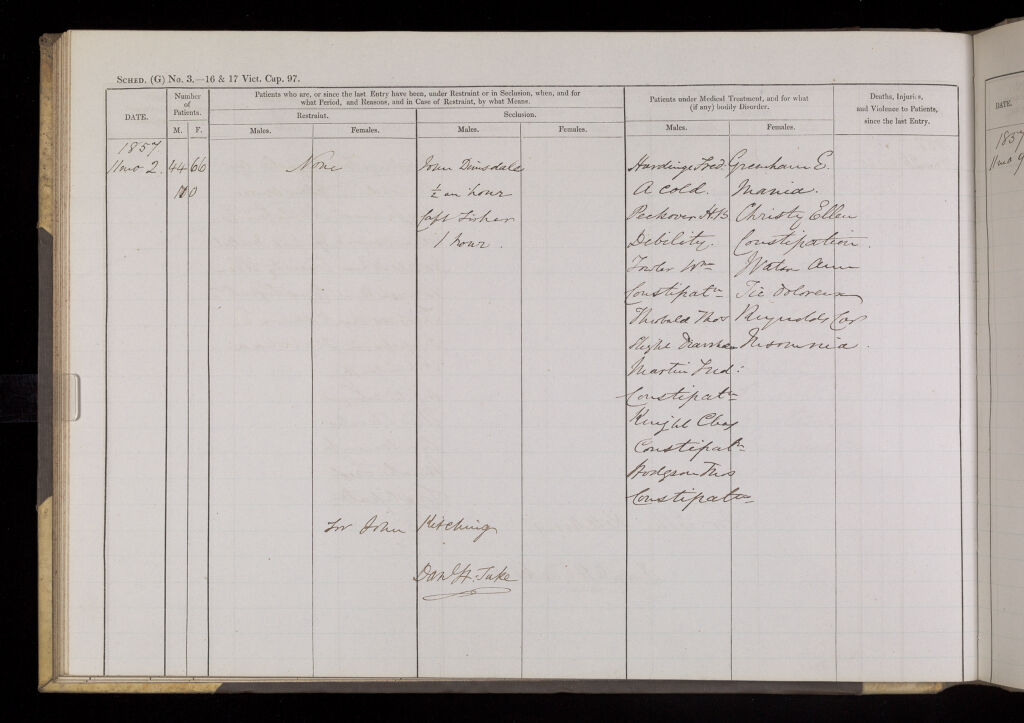 SCHED. (G) No. 3.—16 & 17 Vict. Cap. 97.
DATE.
Number of Patients.
M. F.
Patients who are, or since the last Entry have been, under Restraint or in Seclusion, when, and for
what Period, and Reasons, and in Case of Restraint, by what Means.
Restraint.
Males. Females.
Seclusion.
Males. Females.
Patients under Medical Treatment, and for what
(if any) bodily Disorder.
Males. Females.
Deaths, Injuries,
and Violence to Patients,
since the last Entry.
1857
11mo 2. 44 66 None John Dimsdale Hardinge Fred. Greenham E.
110 ½ an hour A cold. Mania.
Capt Fisher Peckover H.B Christy Ellen
1 hour. Debility. Constipation.
Fowler Wm Waton Ann
Constipatn Tic Doloreux
Theobald Thos Reynolds Car
Slight Diarrhea Insomnia.
Martin Fred:
Constipatn
Knight Chas
Constipatn
Hodgson Thos
Constipatn
for John Kitching
Danl H. Tuke
DATE.
1857
11mo 9